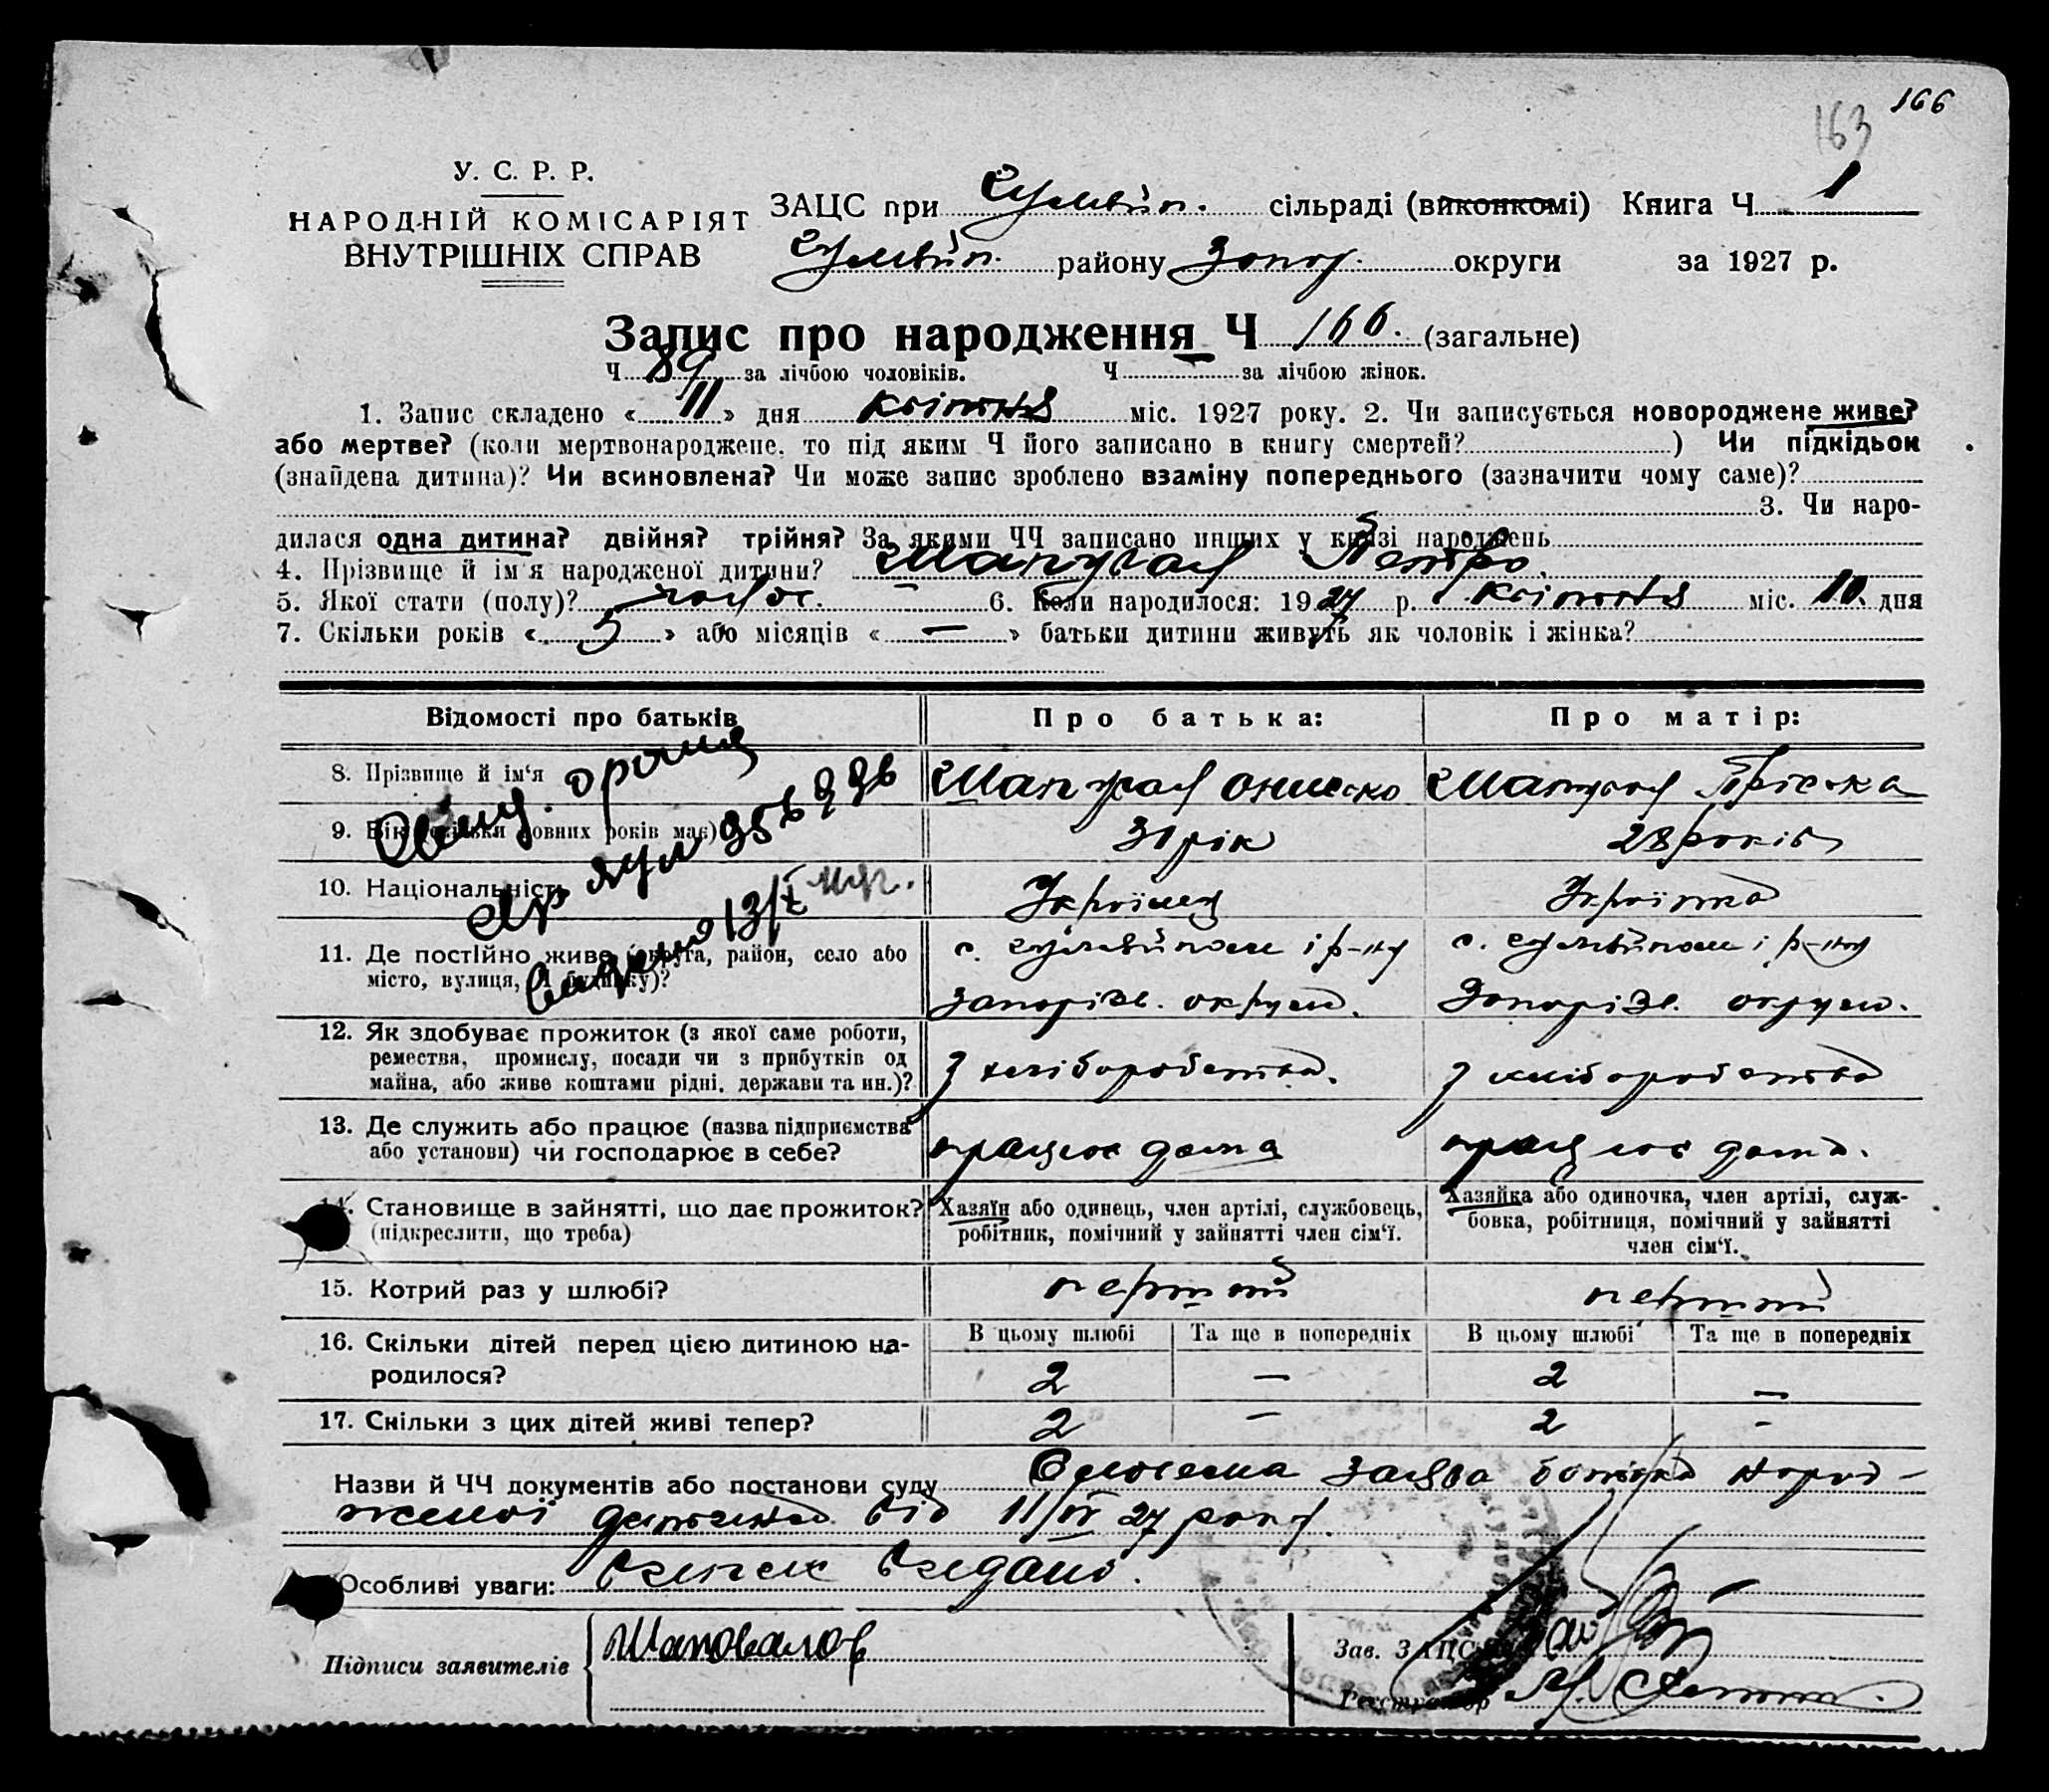 166
163
У. С. Р. Р.
НАРОДНІЙ КОМІСАРІЯТ
ВНУТРІШНІХ СПРАВ
ЗАЦС при Гуляйп. сільраді (виконкомі) Книга Ч 1
Гуляйп. району Запор. округи за 1927 р.
Запис про народження Ч 166. (загальне)
Ч 89 за лічбою чоловіків. Ч — за лічбою жінок.
1. Запис складено « 11 » дня квітня міс. 1927 року. 2. Чи записується новороджене живе?
або мертве? (коли мертвонароджене, то під яким Ч його записано в книгу смертей? ) Чи підкідьок
(знайдена дитина)? Чи всиновлена? Чи може запис зроблено взаміну попереднього (зазначити чому саме)?
3. Чи наро-
дилася одна дитина? двійня? трійня? За якими ЧЧ записано инших у книзі народжень
4. Прізвище й ім'я народженої дитини? Шаповал Петро.
5. Якої стати (полу)? чолов. 6. Коли народилося: 1927 р. квітня міс. 10. дня
7. Скільки років « 5 » або місяців « — » батьки дитини живуть як чоловік і жінка?
Відомості про батьків
Про батька:
Про матір:
8. Прізвище й ім'я
Шаповал Онисько
Шаповал Пріська
9. Вік (скільки повних років має)
31 рік
28 років
10. Національність
Українец
Українка
13/X
11. Де постійно живе (округа, район, село або
місто, вулиця, Ч будинку)?
с. Гуляйполе і р-ну
Запоріж. округи.
с. Гуляйполе і р-ну
Запоріж. округи.
12. Як здобуває прожиток (з якої саме роботи,
ремества, промислу, посади чи з прибутків од
майна, або живе коштами рідні, держави та ин.)?
З хліборобства.
З хліборобства
13. Де служить або працює (назва підприємства
або установи) чи господарює в себе?
працює дома
працює дома.
14. Становище в зайнятті, що дає прожиток?
(підкреслити, що треба)
Хазяїн або одинець, член артілі, службовець,
робітник, помічний у зайнятті член сім'ї.
Хазяйка або одиночка, член артілі, служ-
бовка, робітниця, помічний у зайнятті
член сім'ї.
15. Котрий раз у шлюбі?
перший
перший
16. Скільки дітей перед цією дитиною на-
родилося?
В цьому шлюбі Та ще в попередніх В цьому шлюбі Та ще в попередніх
2 — 2 —
17. Скільки з цих дітей живі тепер?
2 — 2 -
Назви й ЧЧ документів або постанови суду Словесна заява батька народ-
женої дитини від 11/IV 27 року.
Особливі уваги:
Підписи заявителів
Шаповалов
Зав. ЗАЦС
Реєстратор